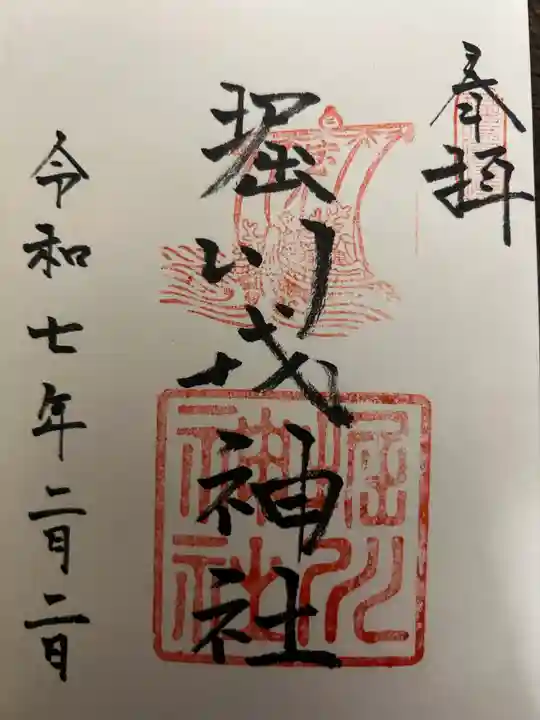 奉拝
堀川戎神社
令和七年二月二日